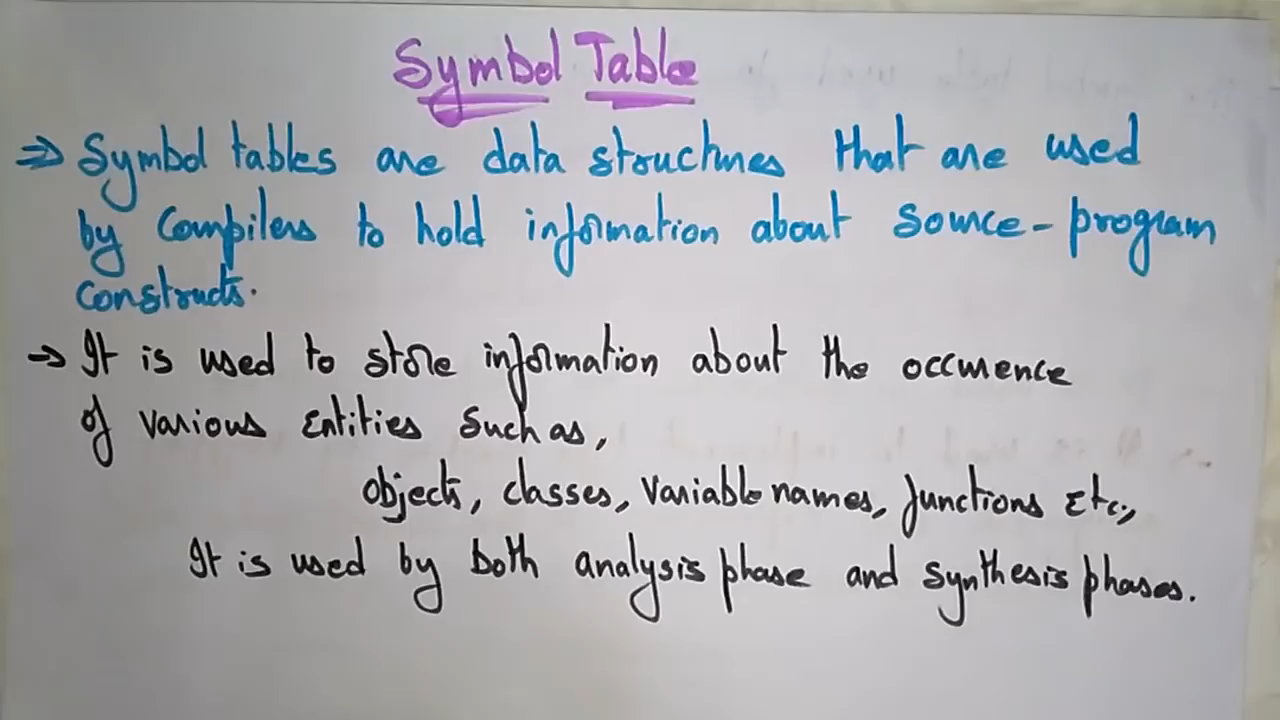 Symbol Table
⇒ Symbol tables are data structures that are used
by Compilers to hold information about source-program
constructs.
→ It is used to store information about the occurence
of various Entities such as,
objects, classes, variable names, functions Etc.,
It is used by both analysis phase and synthesis phases.